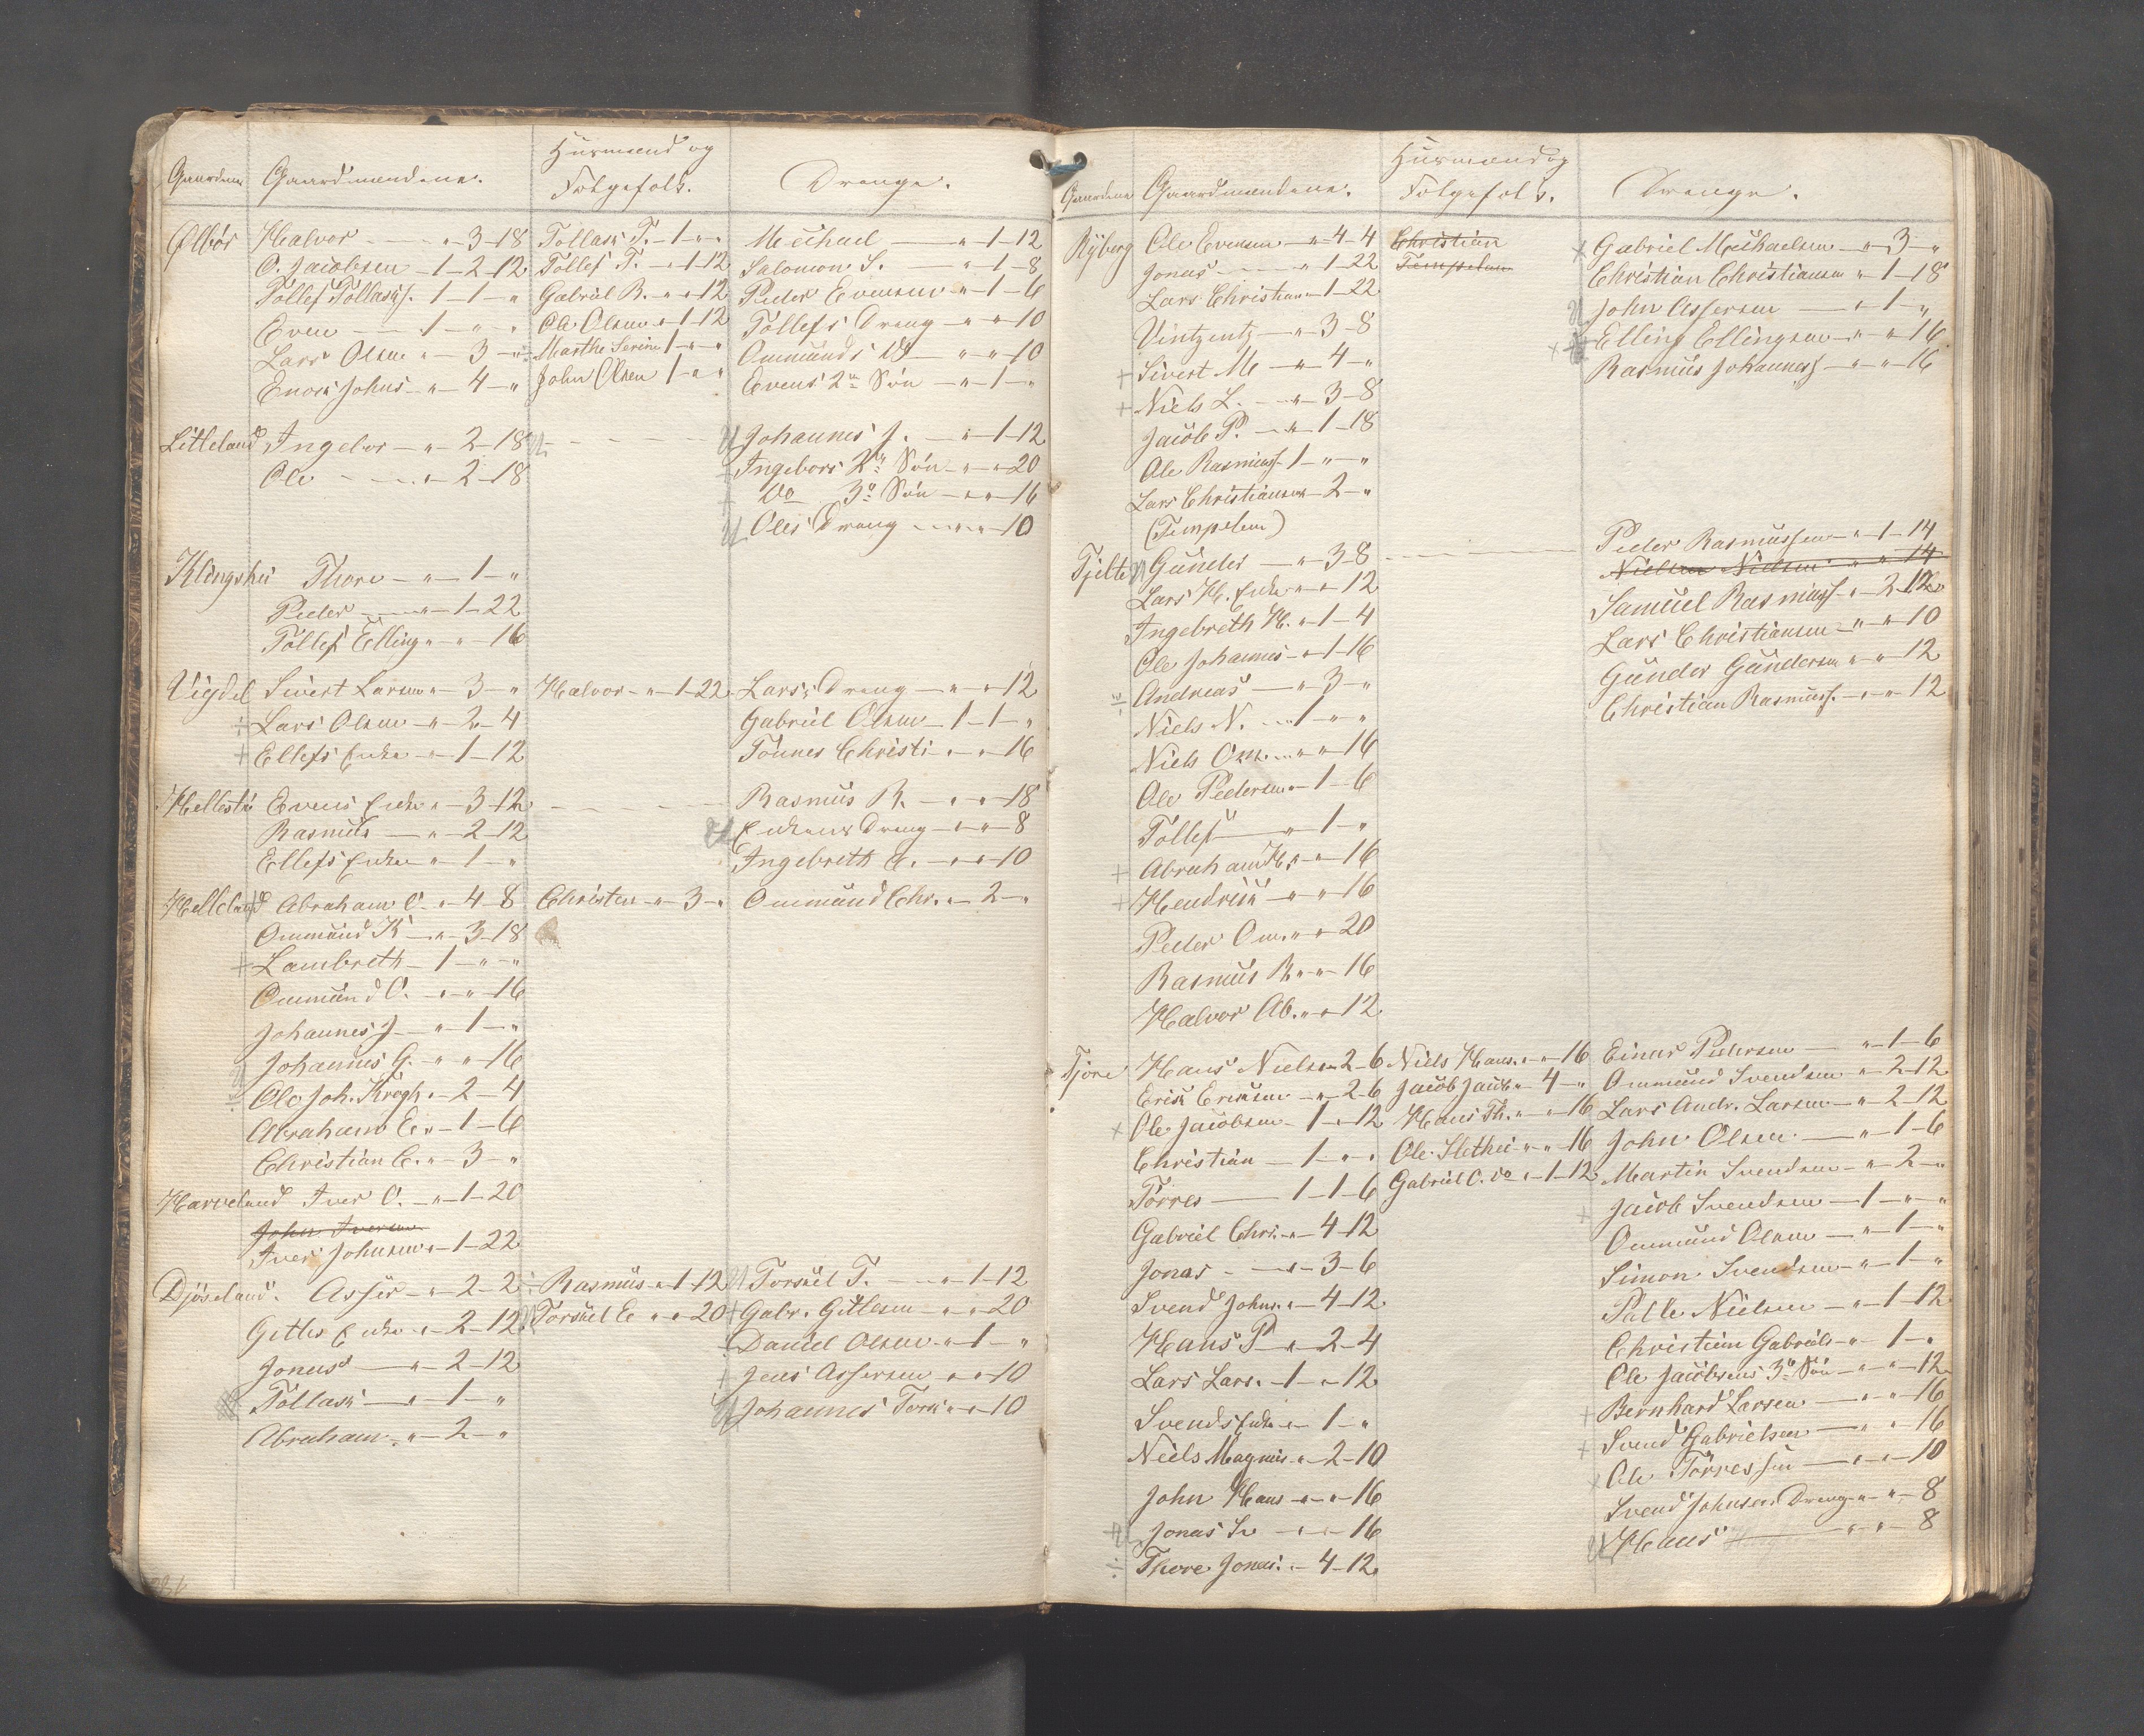 Gaardene Gaardmændene. Huusmænd og Følgefolk. Drenge.
Ølbør Halvor - " - 3 - 18 Tollak T. - 1 - " - " Michael - " - 1 - 12
O. Jacobsen - 1 - 2 - 12 Tollef T. - " - 1 - 12 Salomon S. - " - 1 - 8
Tollef Tollaks. 1 - 1 - " Gabriel R. - " - " - 12 Peder Evensen - " - 1 - 6
Even - 1 - " - " Ole Olsen - " - 1 - 12 Tollefs Dreng - " - " - 10
Lars Olsen - " - 3 - " Marthe Serine 1 - " - " Ommunds Do - " - " - 10
Enok Johns - " - 4 - " John Olsen 1 - " - " Evens 2n Søn - " - 1 - "
Litleland Ingebor - " - 2 - 18 Johannes J. - " - 1 - 12
Ole - " - 2 - 18 Ingebors 2n Søn - " - " - 20
Do 3e Søn - " - " - 16
Oles Dreng - " - " - 10
Klingshei Thore - " - 1 - "
Peder - " - 1 - 22
Tollef Elling " - " - 16
Vigdel Sivert Larsen " - 3 - " Halvor - " - 1 - 22 Lars's Dreng - " - " - 12
÷ Lars Olsen - " - 2 - 4 Gabriel Olsen - 1 - 1 - "
+ Ellefs Enke - " - 1 - 12 Tönnes Christi - " - " - 16
Hellestø Evens Enke " - 3 - 12 Rasmus R. - " - " - 18
Rasmus - " - 2 - 12 Enkens Dreng - " - " - 8
Ellefs Enke " - 1 - " Ingebreth E. - " - " - 10
Helleland Abraham O. - " - 4 - 8 Christen - " - 3 - " Ommund Chr. " - 2 - "
Ommund K - " - 3 - 18
+ Lambreth - 1 - " - "
Ommund O. - " - " - 16
Johannes J - " - 1 - "
Johannes G. - " - " - 16
Ole Joh. Krogh. " - 2 - 4
Abraham E. " - 1 - 6
Christian C. " - 3 - "
Harveland Iver O. - " - 1 - 20
John Iversen
Iver Johnsen " - 1 - 22
Djøseland. Asser - " - 2 - 2 ÷ Rasmus - " - 1 - 12 Torkel T. - " - 1 - 12
Gitles Enke - " - 2 - 12 Torkel E " - " - 20 + Gabr. Gitlesen - " - " - 20
Jonas - " - 2 - 12 Daniel Olsen - " - 1 - "
Tollak - " - 1 - " Jens Assersen " - " - 10
Abraham - " - 2 - " Johannes Tork " - " - 10
Gaardene Gaardmændene. Huusmænd og Følgefolk. Drenge.
Ryberg Ole Evensen - " - 4 - 4 Christian × Gabriel Michaelsen - " - 3 - "
Jonas - " - 1 - 22 Tempelen Christian Christiansen " - 1 - 18
Lars Christian - 1 - 22 John Assersen - " - 1 - "
Vintzentz - " - 3 - 8 Elling Ellingsen - " - " - 16
+ Sivert M - " - 4 - " Rasmus Johanness - " - " - 16
+ Niels L. - " - 3 - 8
Jacob P. - " - 1 - 18
Ole Rasmuss. 1 - " - "
Lars Christiansen - 2 - "
(Tempelen) Peder Rasmussen - " - 1 - 14
Tjelte Gunder - " - 3 - 8 Nielsen Nielsen " " 14
Lars H. Enke - " - " 12 Samuel Rasmuss. " - 2 - 12
Ingebreth H. " - 1 - 4 Lars Christiansen - " - " - 10
Ole Johannes - " - 1 - 16 Gunder Gundersen " - " - 12
Andreas - " - 3 - " Christian Rasmuss. - " - " - 12
Niels N. - 1 - " - "
Niels Om. - " - " - 16
Ole Pedersen - " - 1 - 6
Tollef - " - 1 - "
+ Abraham H. " - " - 16
+ Hendrik - " - " - 16
Peder Om. " - " - 20
Rasmus R. " - " - 16
Halvor Ab. " - " - 12
Tjore Hans Nielsen 2 - 6 Niels Hans. " - " 16 Einer Pedersen - " - 1 - 6
Erik Eriksen - " - 2 - 6 Jacob Jacob " - 4 - " Ommund Svendsen - " - 2 - 12
× Ole Jacobsen - 1 - " - 12 Hans Th. " - " - 16 Lars Andr. Larsen - " - 2 - 12
Christian - 1 - " - " Ole Slethei " - " 16 John Olsen - " - 1 - 6
Törres - 1 - 1 - 6 Gabriel O. do " - 1 - 12 Martin Svendsen - " - 2 - "
Gabriel Chr. " - 4 - 12 + Jacob Svendsen - 1 - " - "
Jonas - " - 3 - 6 Ommund Olsen - " - 1 - "
Svend Johns. " - 4 - 12 Simon Svendsen - " - 1 - "
Hans P - " - 2 - 4 Palle Nielsen - " - 1 - 12
Lars Lars. - 1 - " - 12 Christian Gabriels - " - 1 - "
Svends Enke " - 1 - " Ole Jacobsens 3e Søn - " - " - 12
Niels Magnus - " - 2 - 10 + Bernhard Larsen - " - " - 16
John Hans - " - " - 16 + Svend Gabrielsen - " - " - 16
Jonas Sv - " - " - 16 × Ole Törressen - " - " - 10
÷ Thore Jonas. " - 4 - 12 Svend Johnsens Dreng - " - " - 8
Hans - " - " - 8